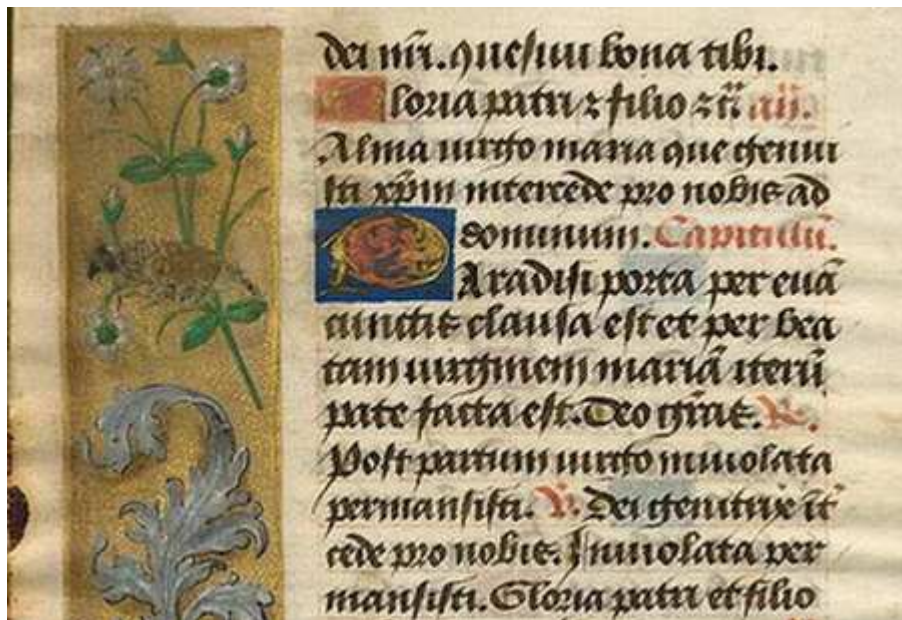 dei nr̄i. quesiui bona tibi.
Gloria patri ⁊ filio ⁊ c̄ añ.
Alma uirgo maria que genui
sti xp̄m intercede pro nobis ad
dominum. Capitulū.
Paradisi porta per euā
cunctis clausa est et per bea
tam uirginem mariā iterū
pate facta est. Deo grās. ℟.
Post partum uirgo inuiolata
permansisti. ℣. Dei genitrix īt
cede pro nobis. Inuiolata per
mansisti. Gloria patri et filio